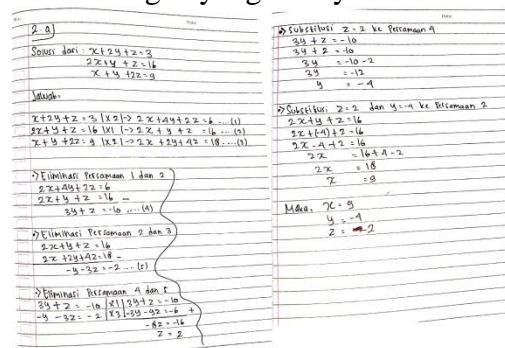 2.a)
Solusi dari : x+2y+z=3
2x+y+z=16
x+y+2z=9
Jawab:
x+2y+z=3 |x2|-> 2x+4y+2z=6 ...(1)
2x+y+z=16 |x1|-> 2x+y+z=16 ...(2)
x+y+2z=9 |x2|-> 2x+2y+4z=18 ...(3)
•> Eliminasi Persamaan 1 dan 2
2x+4y+2z=6
2x+y+z=16 -
3y+z=-10 ....(4)
•> Eliminasi Persamaan 2 dan 3
2x+y+z=16
2x+2y+4z=18 -
-y-3z=-2 ...(5)
•> Eliminasi Persamaan 4 dan 5
3y+z=-10 |x1| 3y+z=-10
-y-3z=-2 |x3| -3y-9z=-6 +
-8z=-16
z=2
•> Substitusi z=2 ke Persamaan 4
3y+z=-10
3y+2=-10
3y=-10-2
3y=-12
y=-4
•> Substitusi z=2 dan y=-4 ke Persamaan 2
2x+y+z=16
2x+(-4)+2=16
2x-4+2=16
2x=16+4-2
2x=18
x=9
Maka, x=9
y=-4
z=2